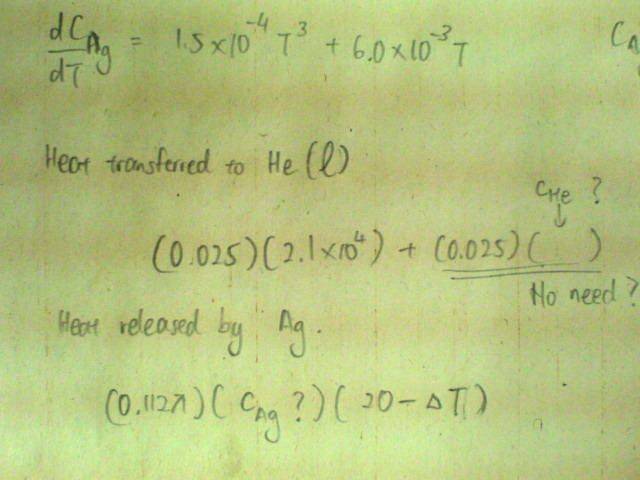 dC_Ag/dT = 1.5×10⁻⁴ T³ + 6.0×10⁻³ T
Heat transferred to He (l)
C_He ?
↓
(0.025)(2.1×10⁴) + (0.025)( )
No need ?
Heat released by Ag.
(C_Ag ?)(20 − ΔT)